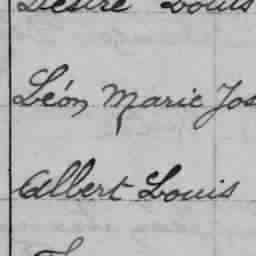 Désiré Louis
Léon Marie Jos
Albert Louis